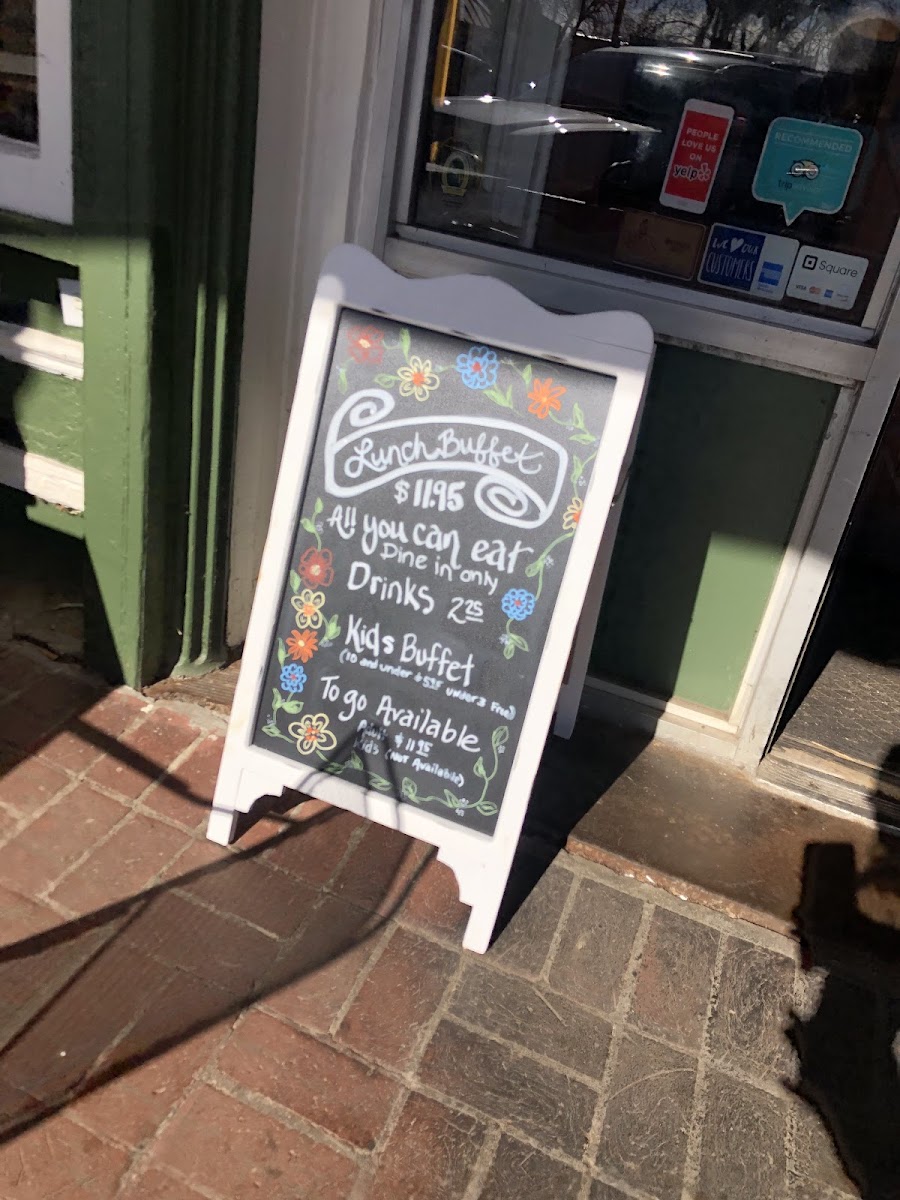 PEOPLE
LOVE US
ON
yelp
RECOMMENDED
WE OUR
CUSTOMERS
Square
VISA
Lunch Buffet
$11.95
All you can eat
Dine in only
Drinks 2.25
Kids Buffet
(10 and under $5.95 under 3 Free)
To go Available
$11.95
Kids (Not Available)